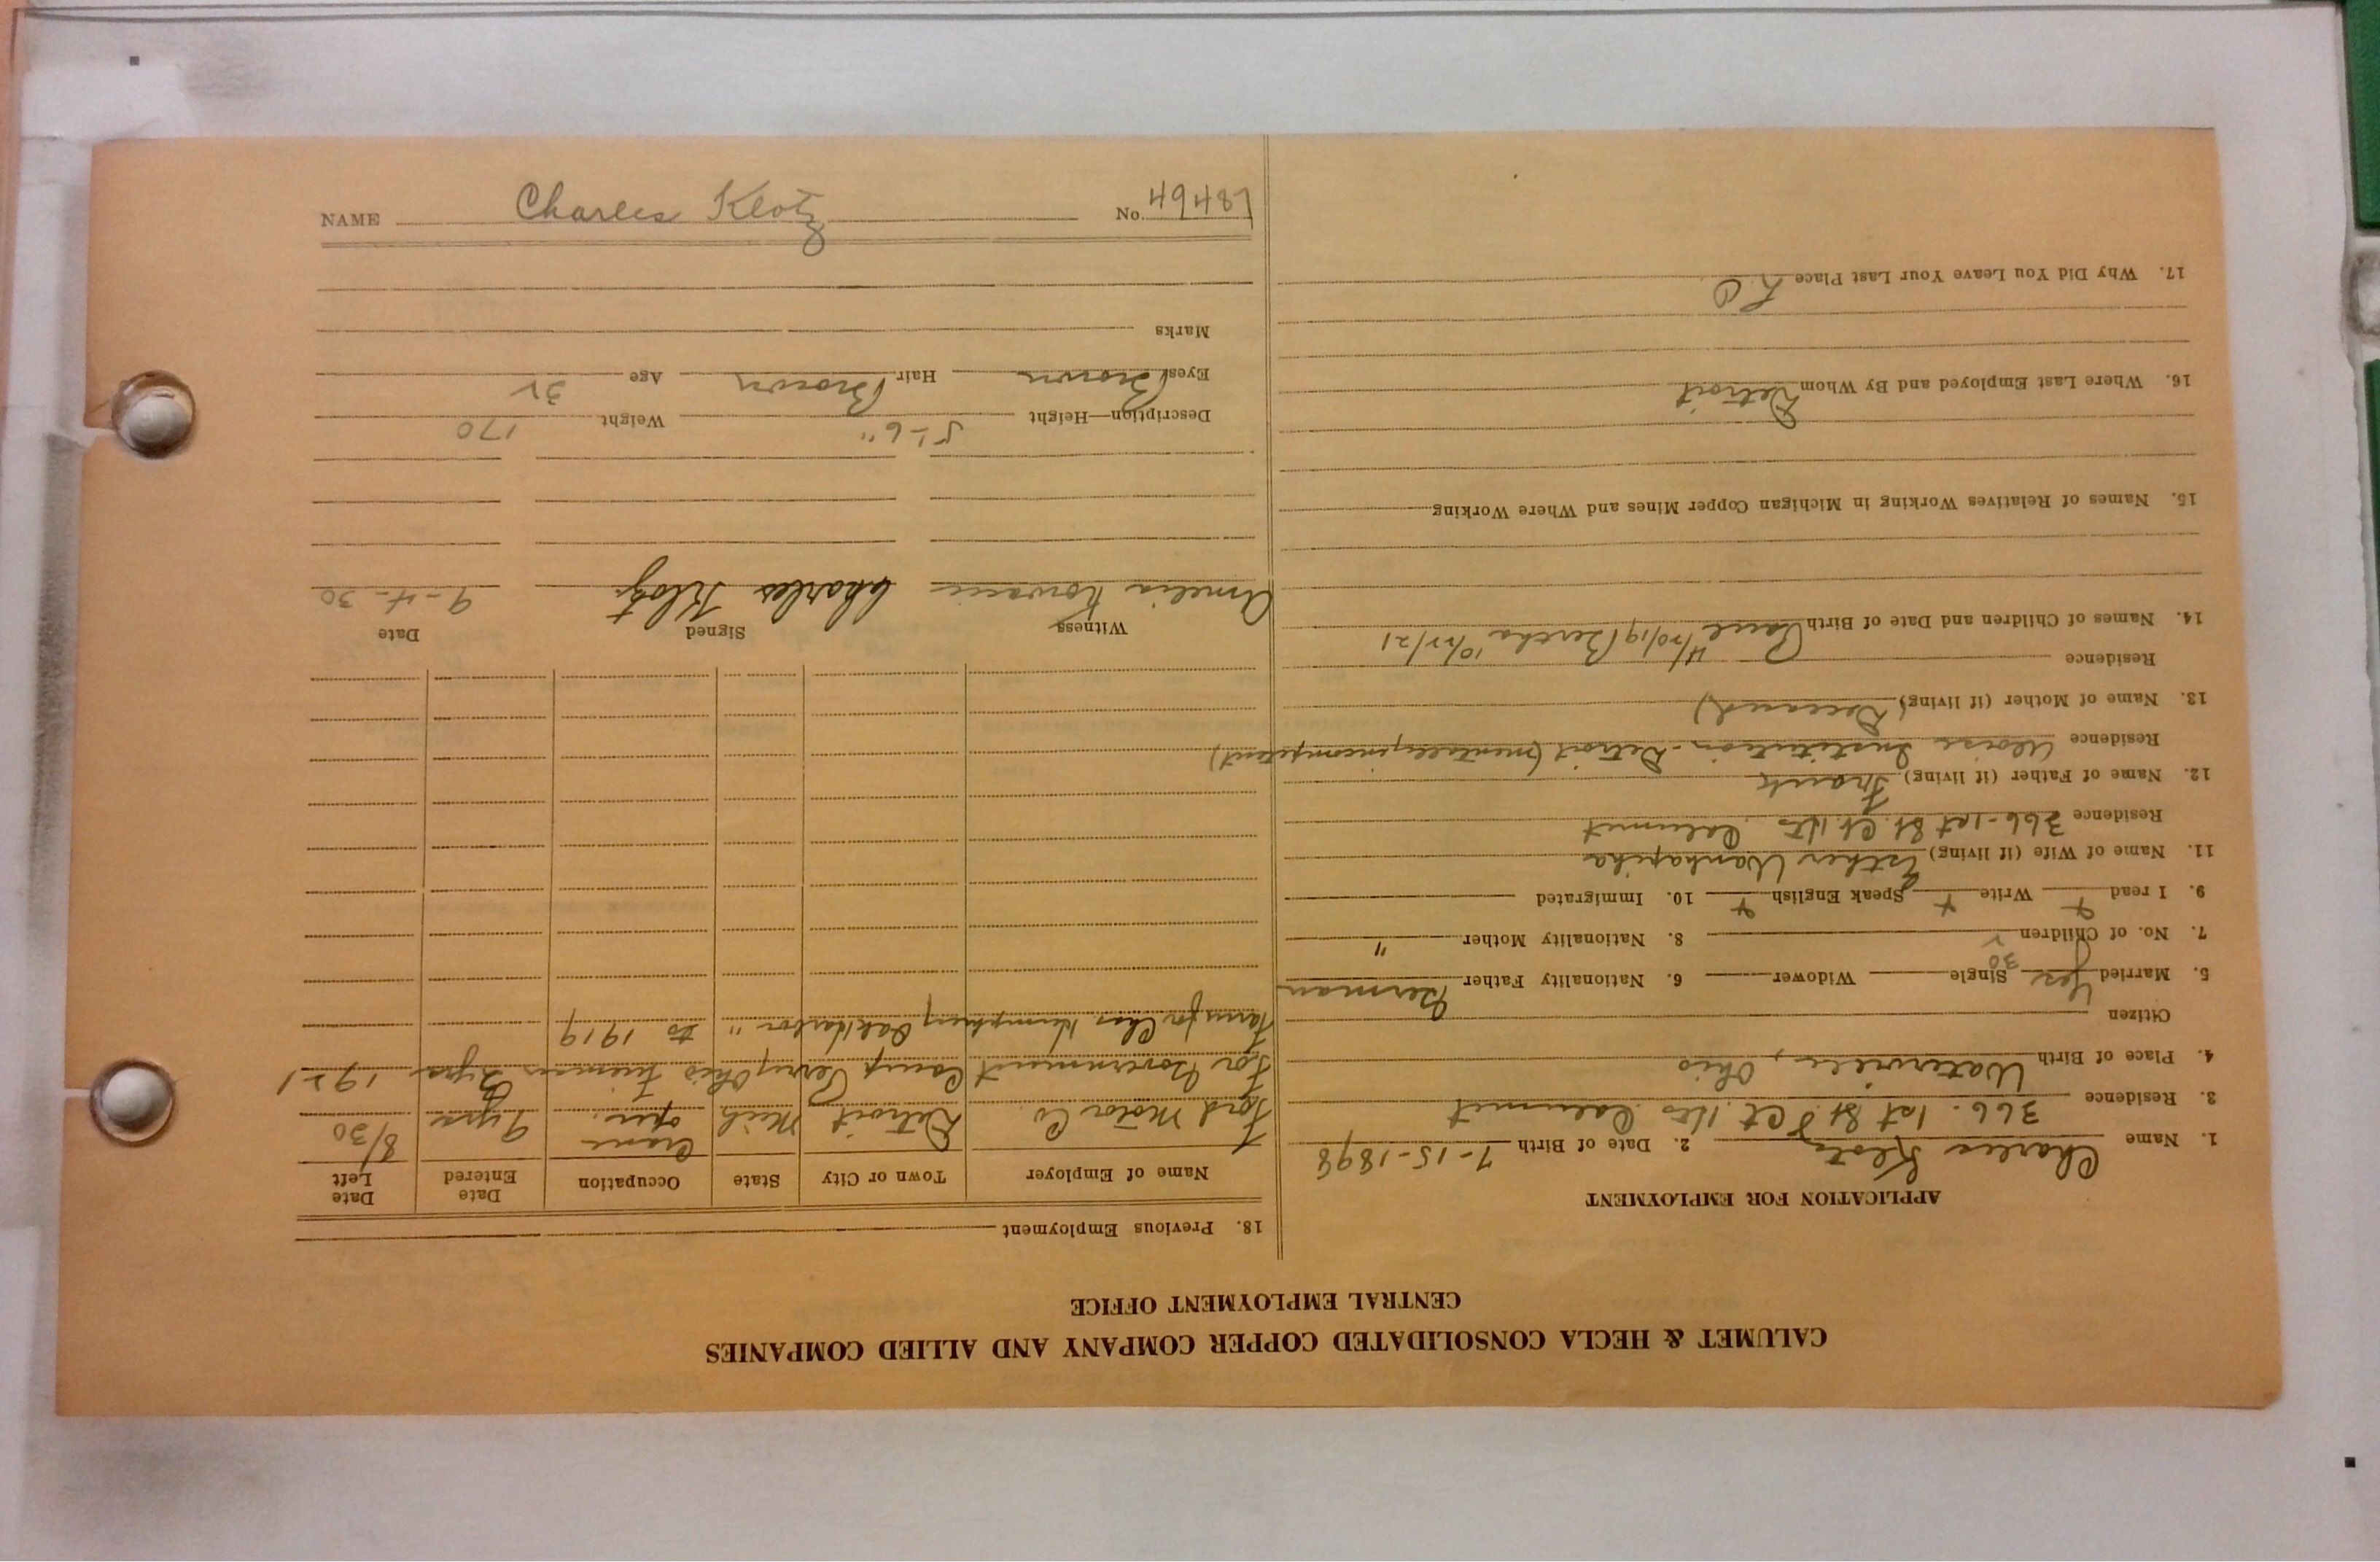 CALUMET & HECLA CONSOLIDATED COPPER COMPANY AND ALLIED COMPANIES
CENTRAL EMPLOYMENT OFFICE
APPLICATION FOR EMPLOYMENT
1. Name Charles Klotz 2. Date of Birth 7-15-1898
3. Residence 366-1st St. Calumet
4. Place of Birth Waterville, Ohio
Citizen Yes
5. Married Yes Single Widower 6. Nationality Father German
7. No. of Children 2 8. Nationality Mother "
9. I read Write Speak English 10. Immigrated
11. Name of Wife (if living) Esther
Residence 366-1st St. Calumet
12. Name of Father (if living) Frank
Residence Institution - Detroit (mentally incompetent)
13. Name of Mother (if living) (Deceased)
Residence
14. Names of Children and Date of Birth 4/20/19 Bertha 10/22/21
15. Names of Relatives Working in Michigan Copper Mines and Where Working
16. Where Last Employed and By Whom Detroit
17. Why Did You Leave Your Last Place
18. Previous Employment
Name of Employer Town or City State Occupation Date Entered Date Left
Ford Motor Co. Detroit Mich Crane oper. 9yrs 8/30
For Government Camp Perry Ohio Fireman 2yrs 1921
Farm for Chas. Humphrey Oak Harbor " to 1919
Witness Signed Date
Amelia Charles Klotz 9-4-30
Description—Height 5'-6" Weight 170
Eyes Brown Hair Brown Age 32
Marks
NAME Charles Klotz No. 49487